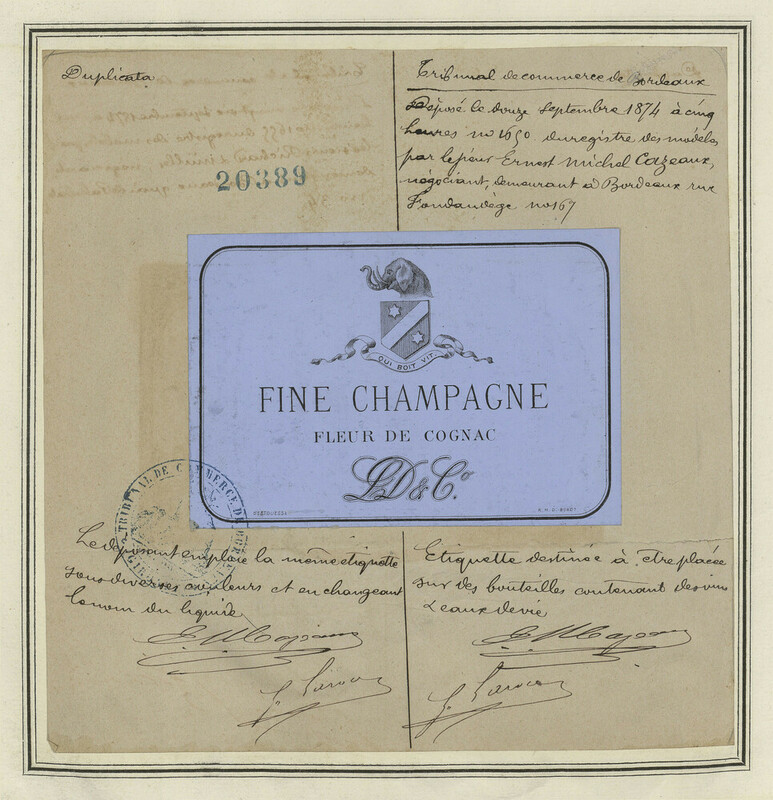 Duplicata
20389
Tribunal de commerce de Bordeaux
Déposé le douze Septembre 1874 à cinq
heures no 1650 du registre des modèles
par le sieur Ernest Michel Cazeaux,
négociant, demeurant à Bordeaux rue
Fondaudège no 167
QUI BOIT VIT.
FINE CHAMPAGNE
FLEUR DE COGNAC
LD & Co.
TRIBUNAL DE COMMERCE DE
Le déposant emploie la même etiquette
sous diverses couleurs et en changeant
le nom du liquide
Etiquette destinée à être placée
sur des bouteilles contenant des vins
& eaux de vie